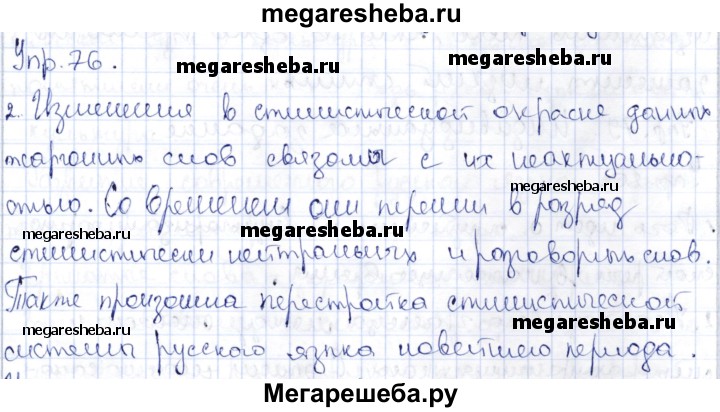 megaresheba.ru
Упр. 76.
megaresheba.ru
megaresheba.ru
2. Изменения в стилистической окраске данных
жаргонных слов связаны с их неактуально-
megaresheba.ru
стью. Со временем они перешли в разряд
megaresheba.ru
стилистически нейтральных и разговорных слов.
megaresheba.ru
Также произошла перестройка стилистической
megaresheba.ru
megaresheba.ru
системы русского языка новейшего периода.
Мегарешеба.ру